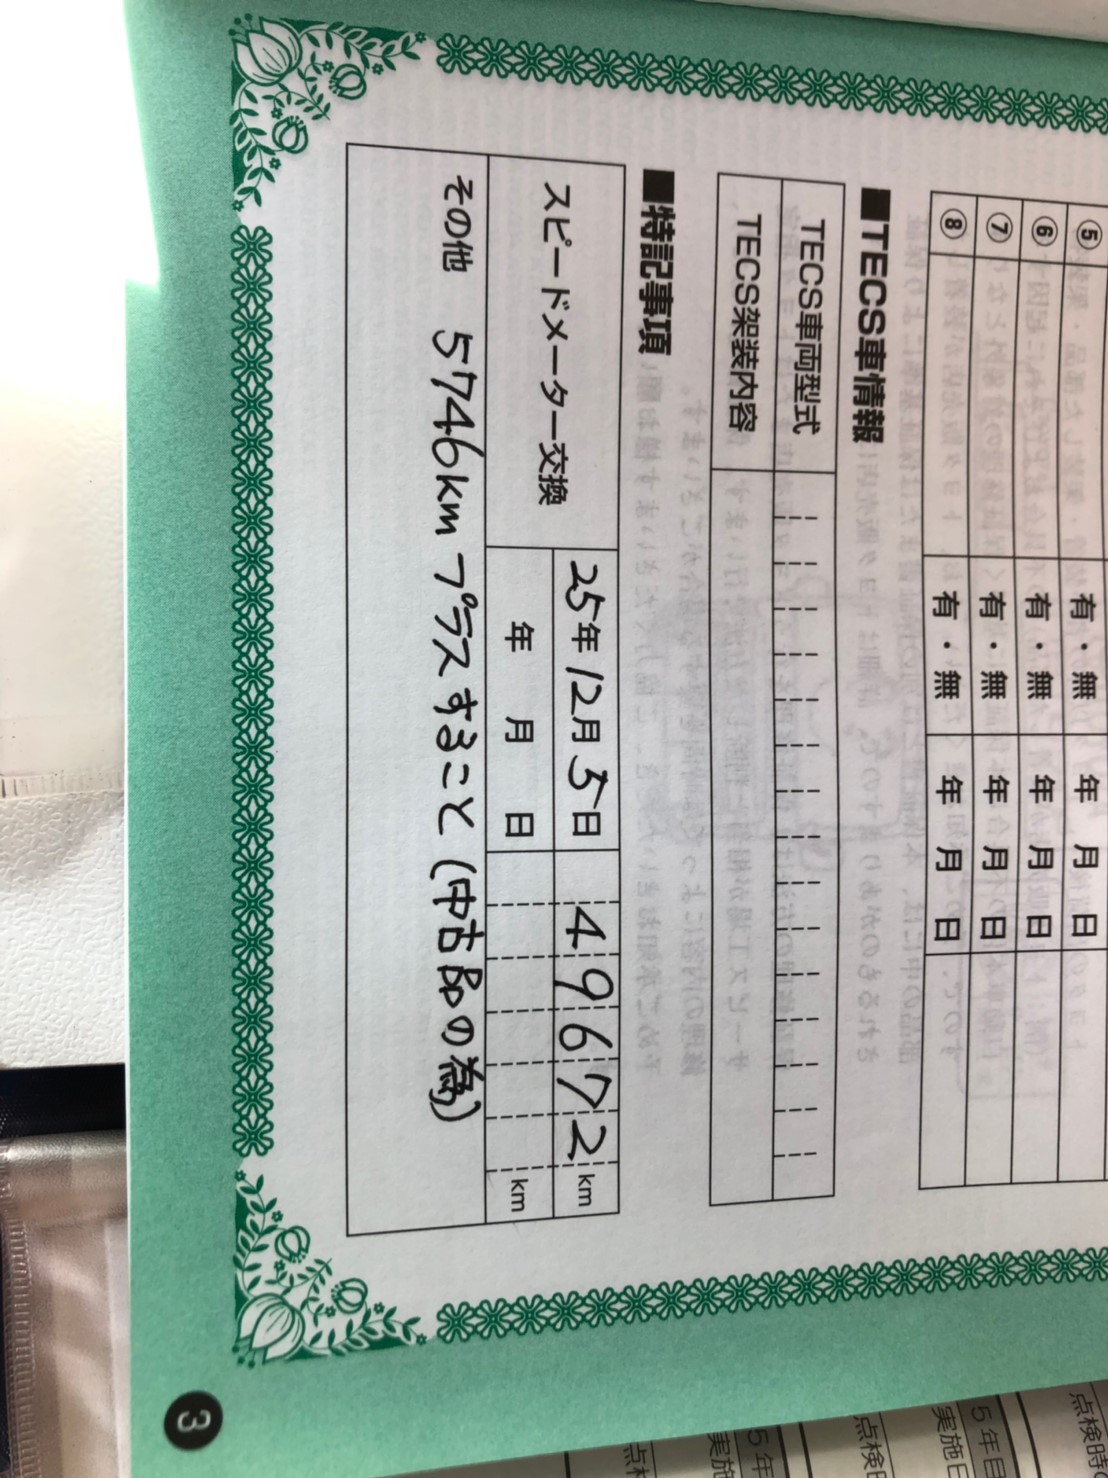 ⑤ 有・無 年 月 日
⑥ 有・無 年 月 日
⑦ 有・無 年 月 日
⑧ 有・無 年 月 日
■TECS車情報
TECS車両型式
TECS架装内容
■特記事項
スピードメーター交換 25年12月5日 49672km
年 月 日 km
その他 5746kmプラスすること(中古品の為)
3
5年目
点検時
実施日
点検日
5年目
実施
点検